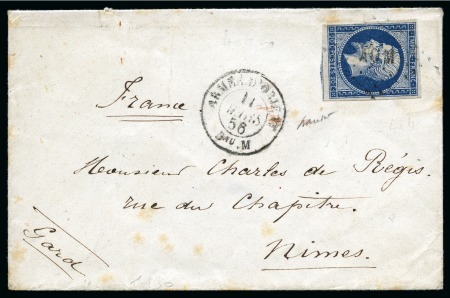 ARMÉE D'ORIENT
11
MARS
56
Bau. M
France
Monsieur Charles de Régis.
rue du Chapitre.
Nimes.
Gard